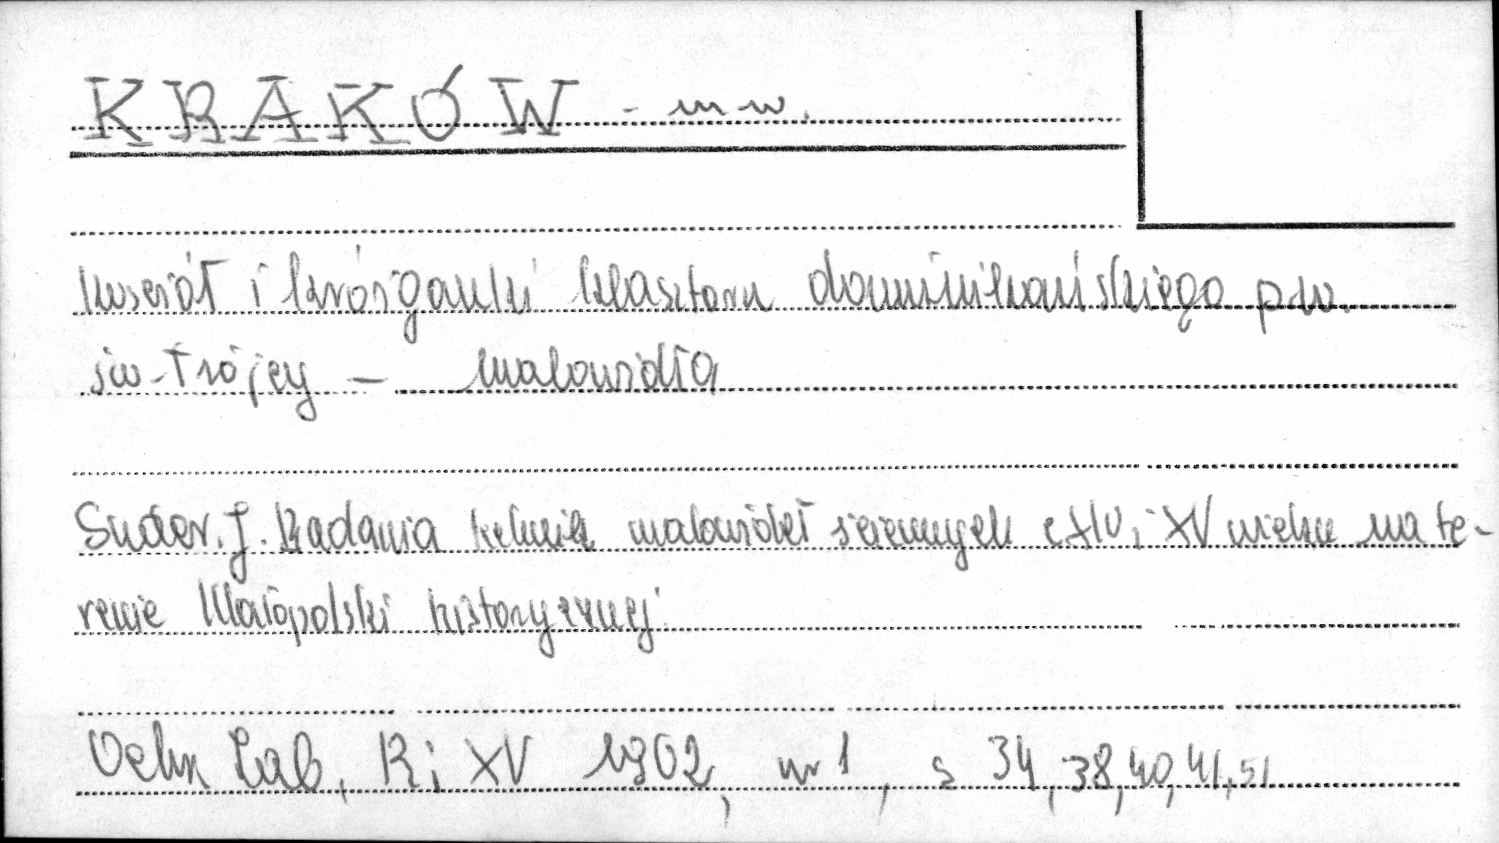 KRAKÓW - m w.
kościół i krużganki klasztoru dominikańskiego p.w.
św. Trójcy - malowidła
Suder. J. Badania technik malowideł ściennych z XIV i XV wieku na te-
renie Małopolski historycznej
Ochr Zab, R; XV 1962, nr 1, s 34, 38, 40, 41, 51